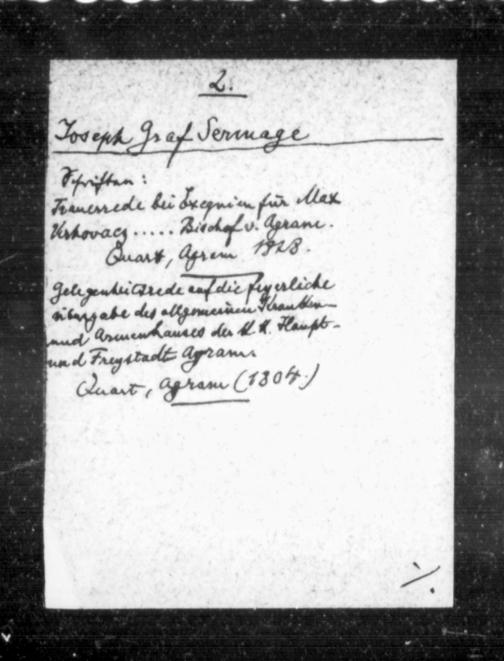 2.
Joseph Graf Sermage
Schriften:
Trauerrede bei Exequien für Max
Verhovacz ..... Bischof v. Agram.
Quart, Agram 1828.
Gelegenheitsrede auf die feyerliche
übergabe des allgemeinen Kranken-
und Armenhauses der k. k. Haupt-
und Freystadt Agram
Quart, Agram (1804.)
./.